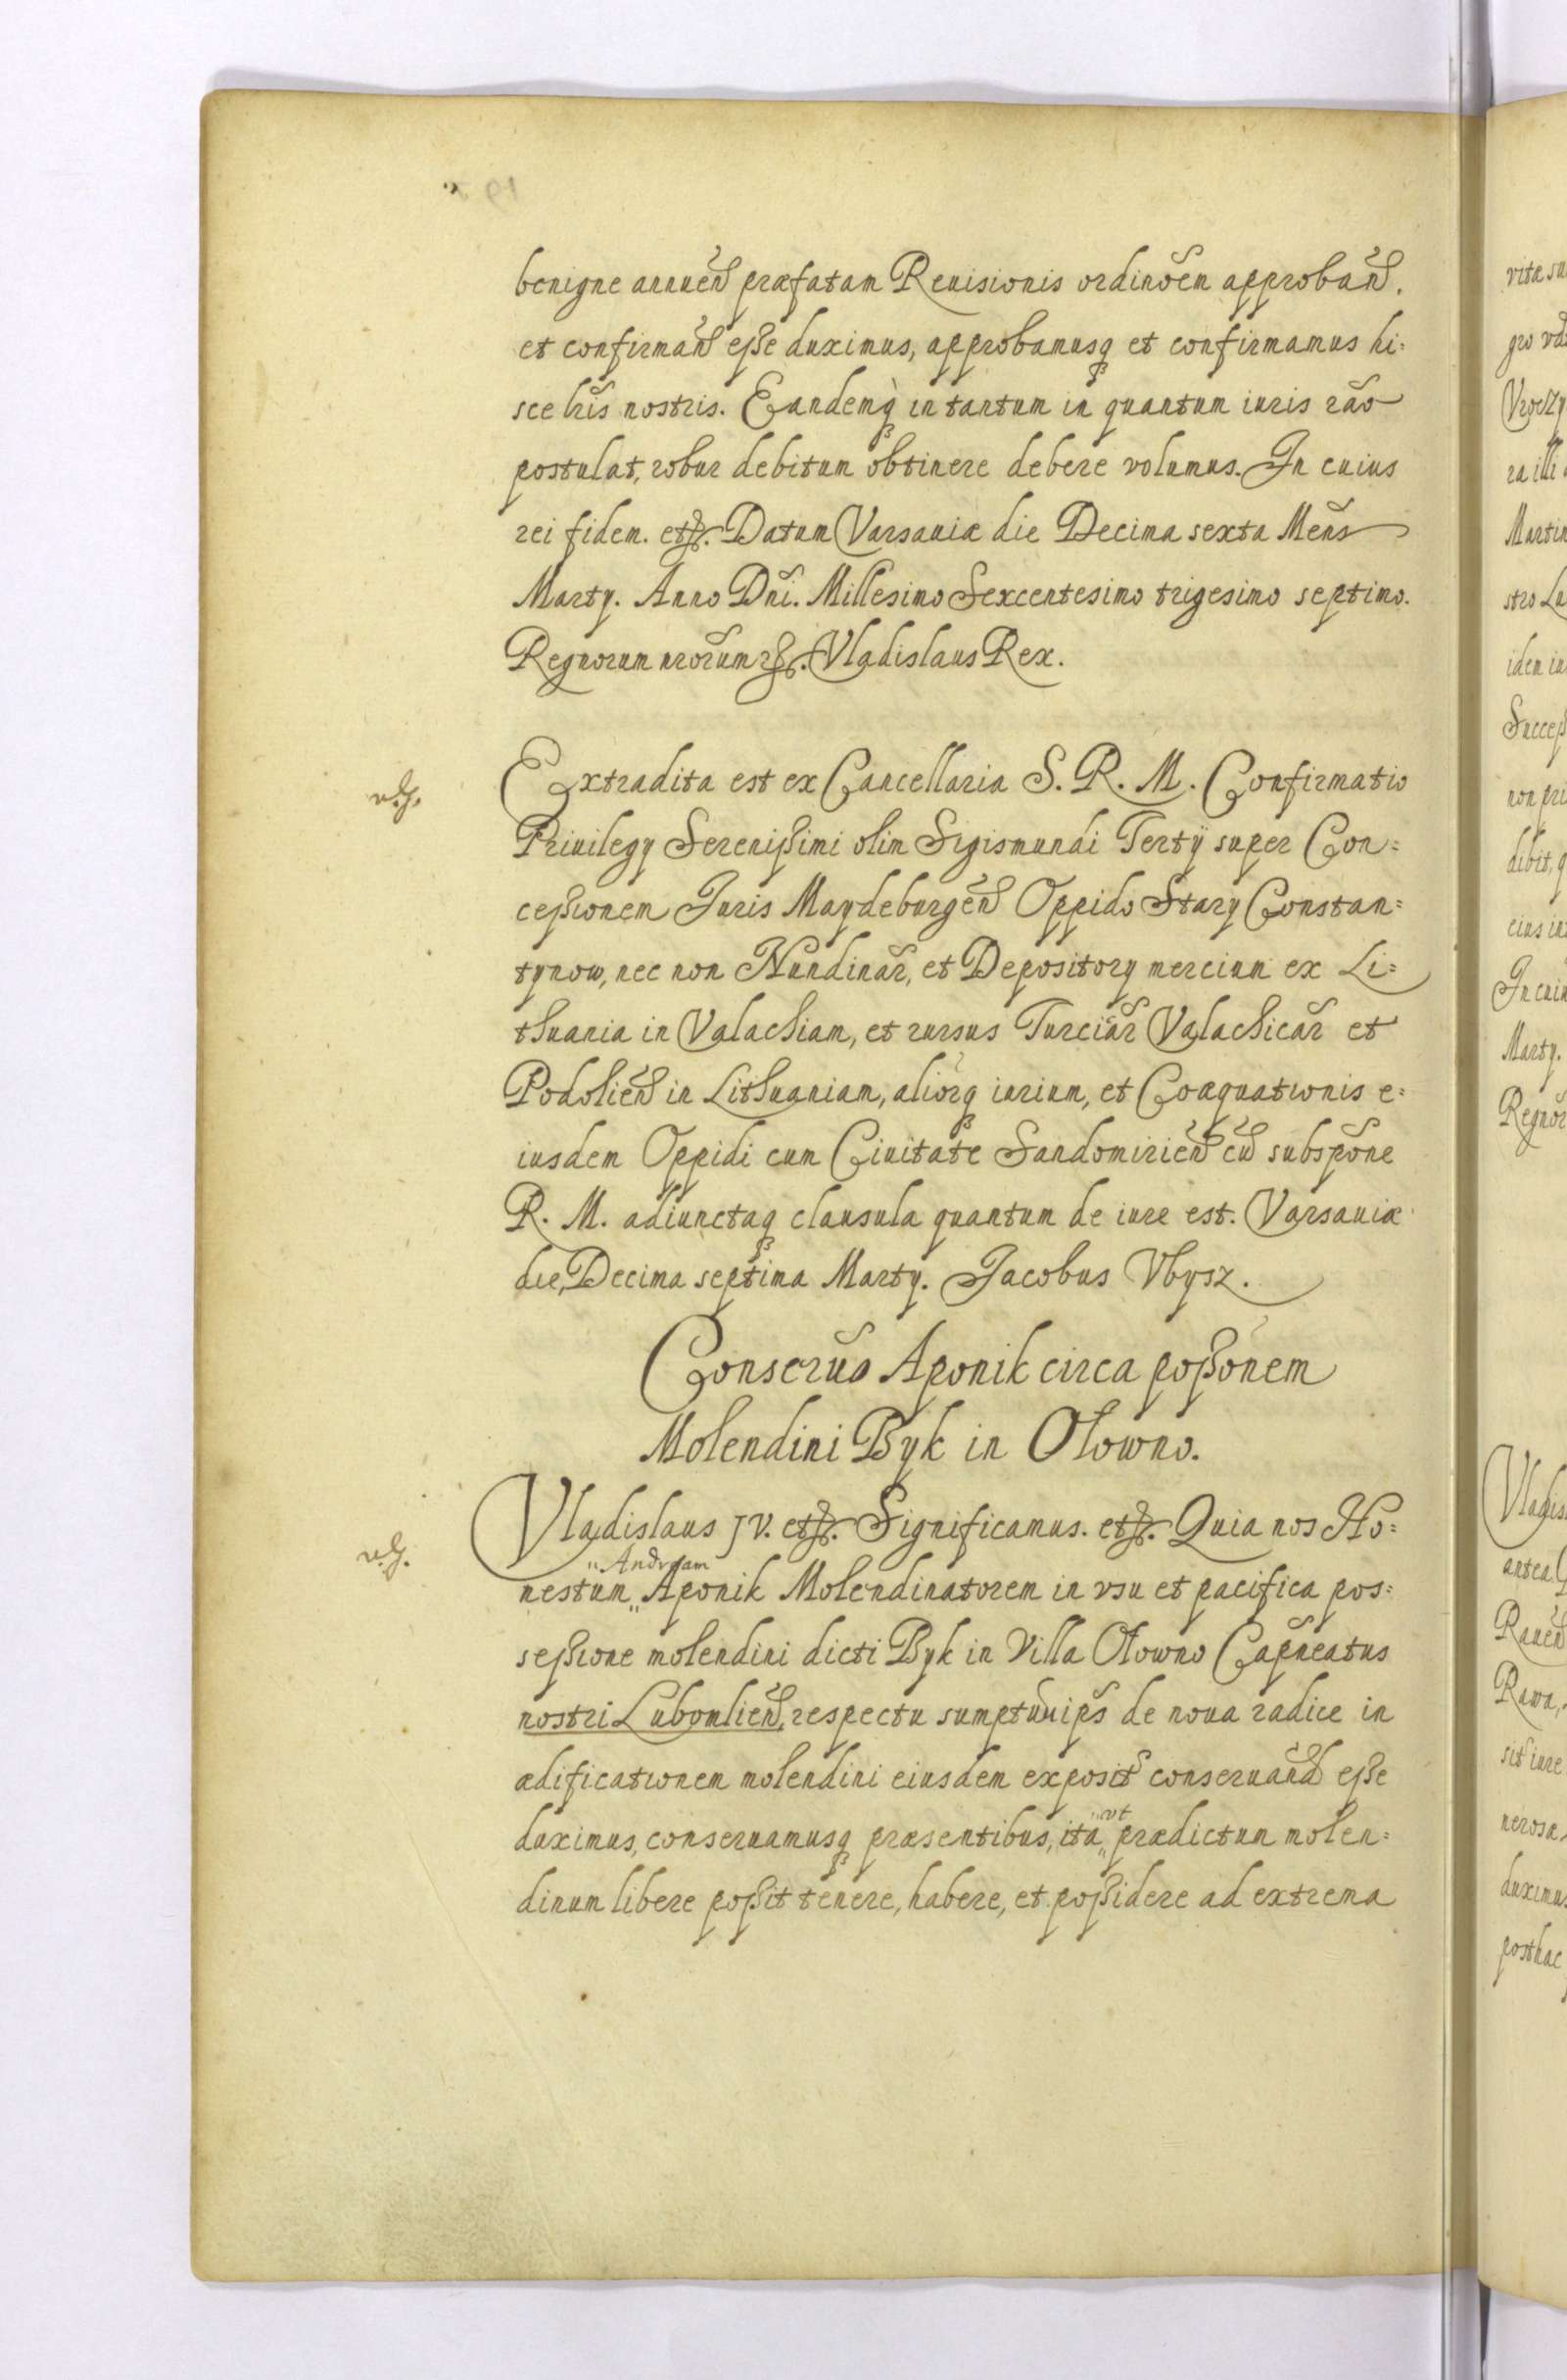 benigne annuen̄ præfatam Reuisionis ordinōem approban̄.
et confirman̄ eſse duximus, approbamusq et confirmamus hi=
sce lris̄ nostris. Eandemq̀ in tantum in quantum iuris rāo
postulat, robur debitum obtinere debere volumus. In cuius
rei fidem. etc. Datum Varsauiæ die Decima sexta Mens̄
Martÿ. Anno Dn̄i. Millesimo Sexcentesimo trigesimo septimo.
Regnorum nrōrum etc. Vladislaus Rex.
Extradita est ex Cancellaria S. R. M. Confirmatio
Priuilegÿ Sereniſsimi olim Sigismundi Tertÿ super Con=
ceſsionem Juris Maydeburgen̄ Oppido Stary Constan=
tynow, nec non Nundinar̄, et Depositorÿ mercium ex Li=
thuania in Valachiam, et rursus Turciar̄ Valachicar̄ et
Podolien̄ in Lithuaniam, aliorq̄ iurium, et Coæquationis e=
iusdem Oppidi cum Ciuitate Sandomirien̄ cū subspōne
R. M. adiunctaq clausula quantum de iure est. Varsauiæ
die, Decima septima Martÿ. Jacobus Vbysz.
Conserūo Aponik circa poſsōnem
Molendini Byk in Ołowno.
Vladislaus IV. etc. Significamus. etc. Quia nos Ho=
„Andream
nestum „ Aponik Molendinatorem in vsu et pacifica pos=
seſsione molendini dicti Byk in Villa Ołowno Cap̄neatus
nostri Lubomlien̄, respectu sumptuū ip̄s de noua radice in
ædificationem molendini eiusdem exposit̄ conseruand̄ eſse
duximus, conseruamusq præsentibus, ita „ prædictum molen=
„vt
dinum libere poſsit tenere, habere, et poſsidere ad extrema